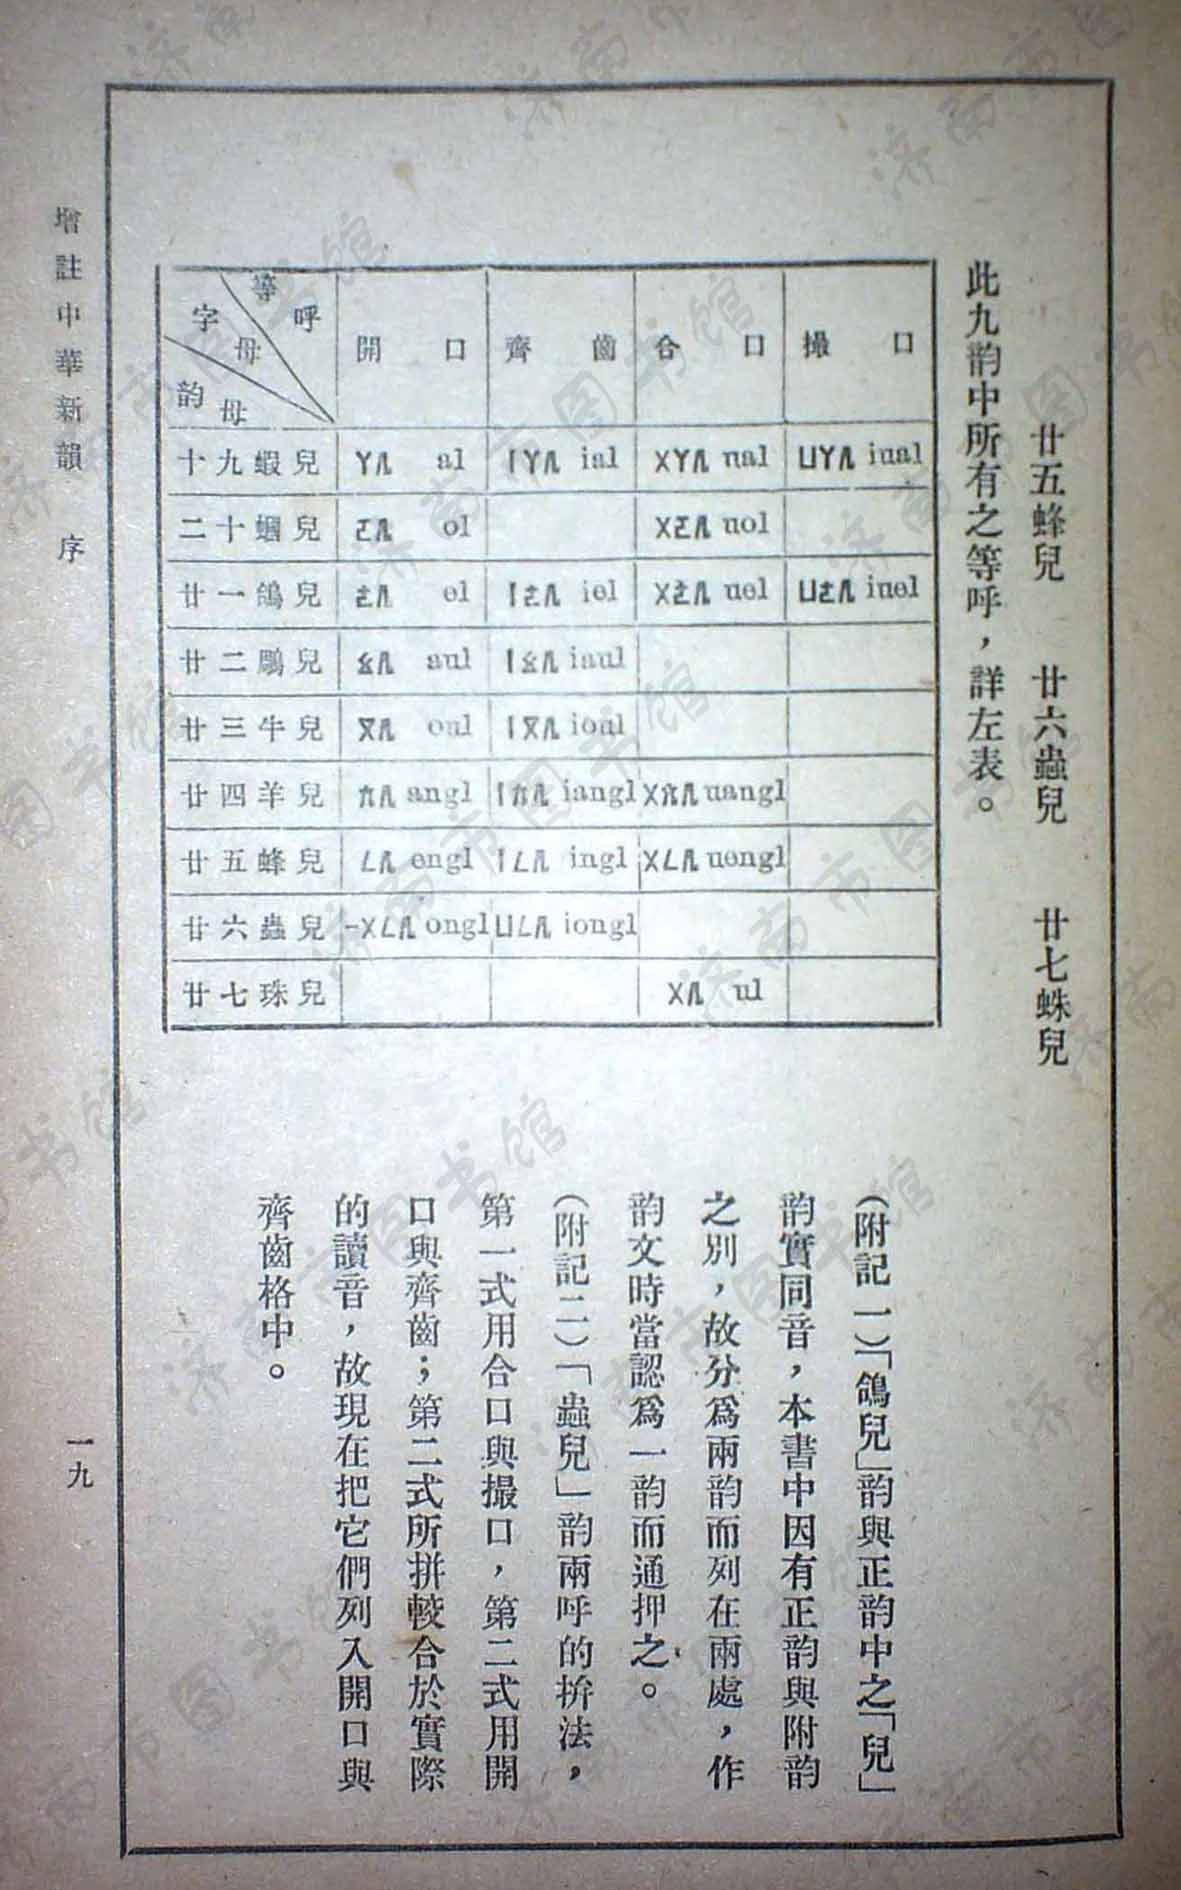 廿五蜂兒 廿六蟲兒 廿七蛛兒
此九韵中所有之等呼,詳左表。
等呼 字母 韵母 開口 齊齒 合口 撮口
十九蝦兒 ㄚㄦ al ㄧㄚㄦ ial ㄨㄚㄦ ual ㄩㄚㄦ iual
二十蟈兒 ㄛㄦ ol ㄨㄛㄦ uol
廿一鴿兒 ㄜㄦ el ㄧㄜㄦ iel ㄨㄜㄦ uel ㄩㄜㄦ iuel
廿二鵰兒 ㄠㄦ aul ㄧㄠㄦ iaul
廿三牛兒 ㄡㄦ oul ㄧㄡㄦ ioul
廿四羊兒 ㄤㄦ angl ㄧㄤㄦ iangl ㄨㄤㄦ uangl
廿五蜂兒 ㄥㄦ engl ㄧㄥㄦ ingl ㄨㄥㄦ uengl
廿六蟲兒 -ㄨㄥㄦ ongl ㄩㄥㄦ iongl
廿七珠兒 ㄨㄦ ul
(附記一)「鴿兒」韵與正韵中之「兒」
韵實同音,本書中因有正韵與附韵
之別,故分爲兩韵而列在兩處,作
韵文時當認爲一韵而通押之。
(附記二)「蟲兒」韵兩呼的拚法,
第一式用合口與撮口,第二式用開
口與齊齒;第二式所拼較合於實際
的讀音,故現在把它們列入開口與
齊齒格中。
增註中華新韻 序
一九
济南市图书馆